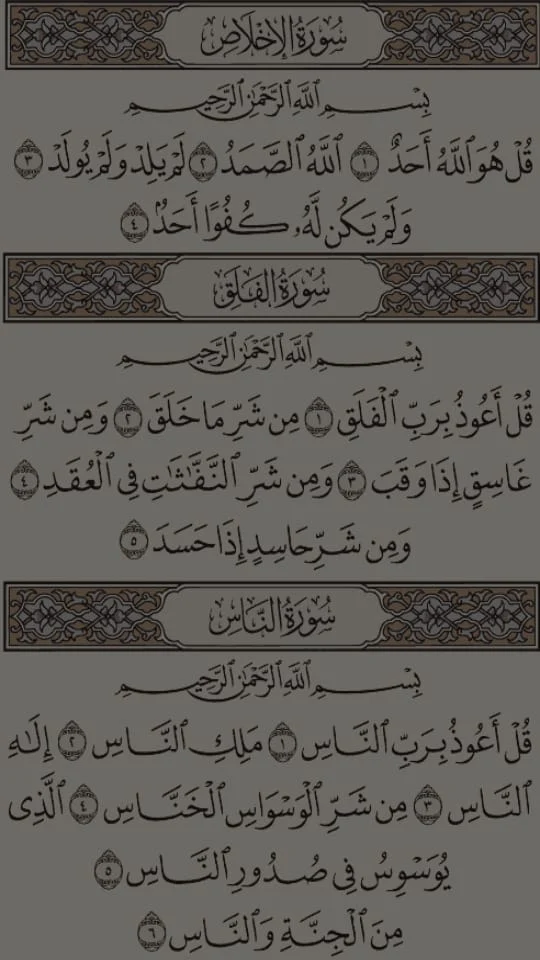 سُورَةُ الإِخْلَاصِ
بِسْمِ ٱللَّهِ ٱلرَّحْمَٰنِ ٱلرَّحِيمِ
قُلْ هُوَ ٱللَّهُ أَحَدٌ ١ ٱللَّهُ ٱلصَّمَدُ ٢ لَمْ يَلِدْ وَلَمْ يُولَدْ ٣
وَلَمْ يَكُن لَّهُۥ كُفُوًا أَحَدٌۢ ٤
سُورَةُ الفَلَقِ
بِسْمِ ٱللَّهِ ٱلرَّحْمَٰنِ ٱلرَّحِيمِ
قُلْ أَعُوذُ بِرَبِّ ٱلْفَلَقِ ١ مِن شَرِّ مَا خَلَقَ ٢ وَمِن شَرِّ
غَاسِقٍ إِذَا وَقَبَ ٣ وَمِن شَرِّ ٱلنَّفَّٰثَٰتِ فِى ٱلْعُقَدِ ٤
وَمِن شَرِّ حَاسِدٍ إِذَا حَسَدَ ٥
سُورَةُ النَّاسِ
بِسْمِ ٱللَّهِ ٱلرَّحْمَٰنِ ٱلرَّحِيمِ
قُلْ أَعُوذُ بِرَبِّ ٱلنَّاسِ ١ مَلِكِ ٱلنَّاسِ ٢ إِلَٰهِ
ٱلنَّاسِ ٣ مِن شَرِّ ٱلْوَسْوَاسِ ٱلْخَنَّاسِ ٤ ٱلَّذِى
يُوَسْوِسُ فِى صُدُورِ ٱلنَّاسِ ٥
مِنَ ٱلْجِنَّةِ وَٱلنَّاسِ ٦